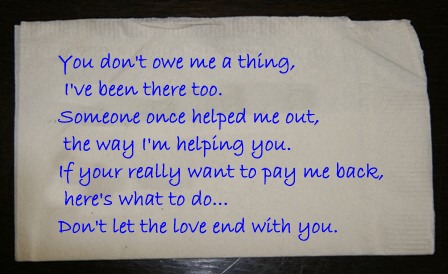 You don't owe me a thing,
I've been there too.
Someone once helped me out,
the way I'm helping you.
If your really want to pay me back,
here's what to do...
Don't let the love end with you.